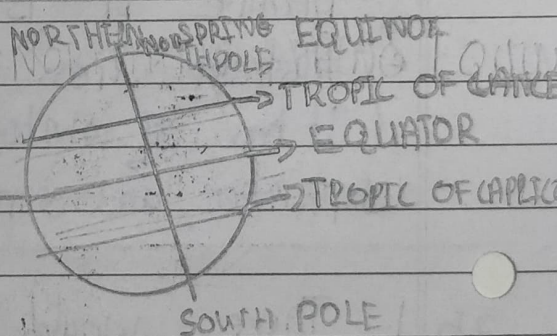 NORTHERN SPRING EQUINOX
NORTH POLE
TROPIC OF CANCE
EQUATOR
TROPIC OF CAPRIC
SOUTH POLE